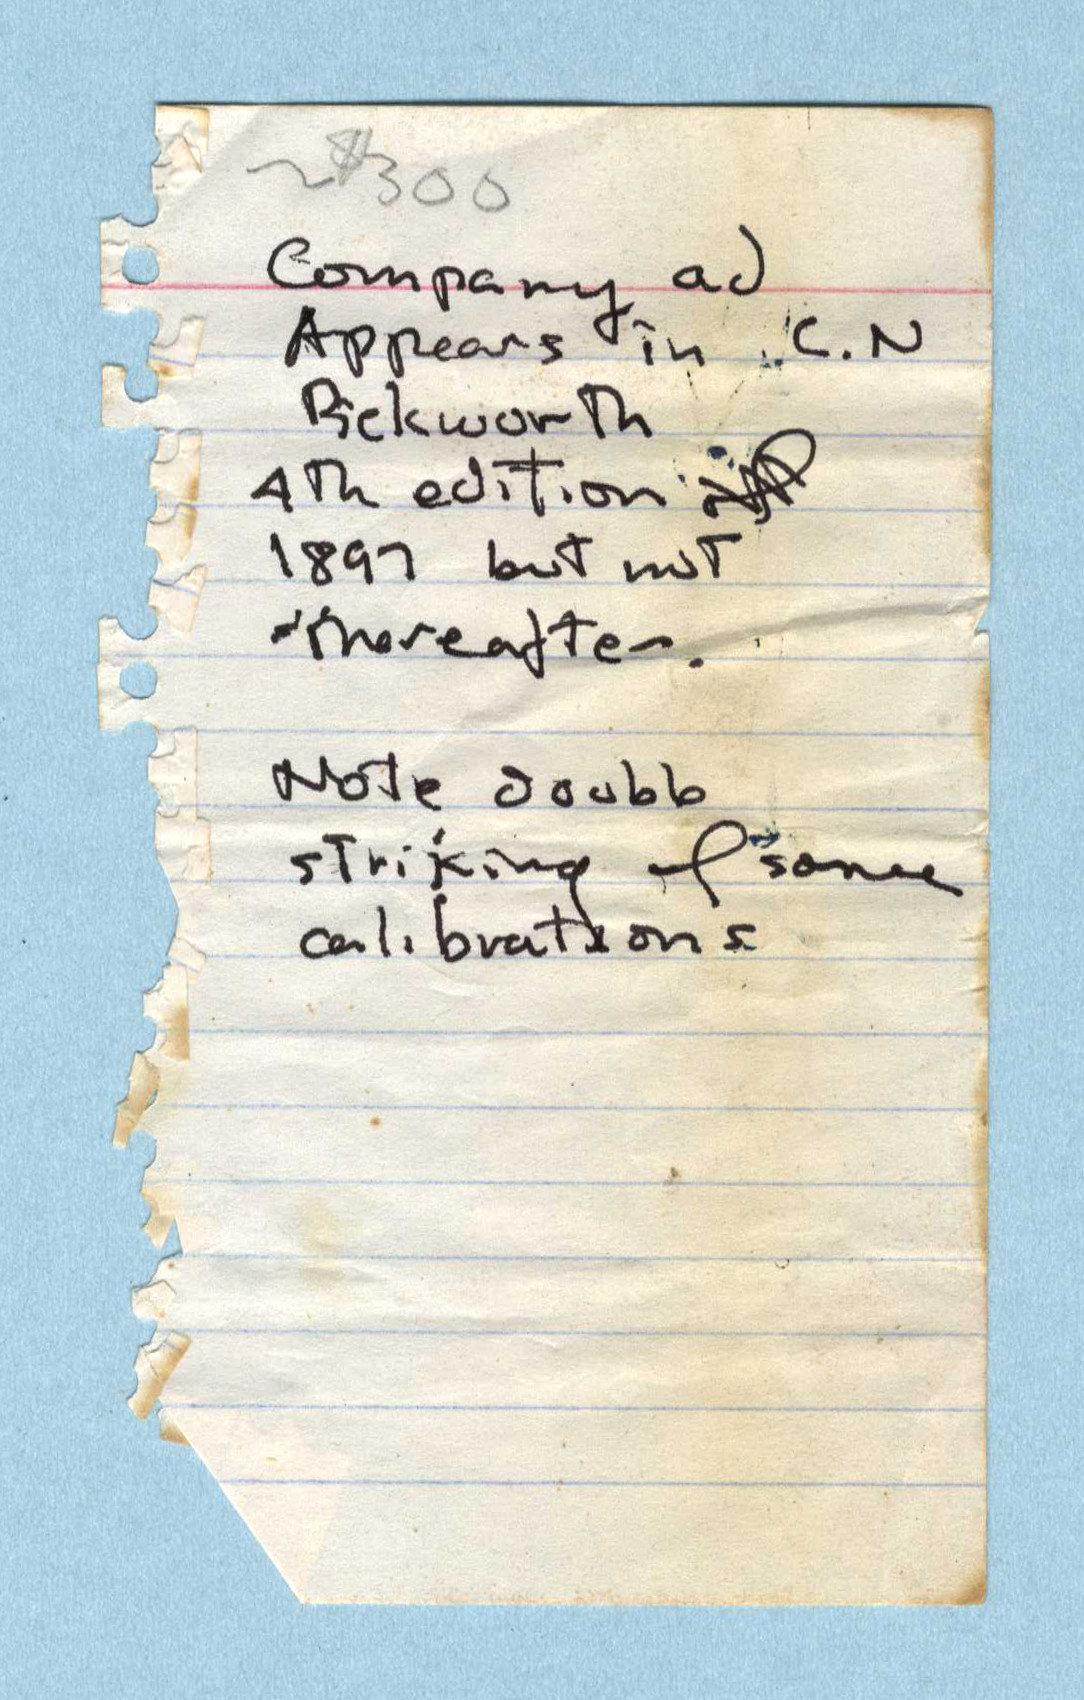 ~$300
Company ad
Appears in C.N
Pickworth
4Th edition
1897 but not
thereafter.
Note double
striking of some
calibrations